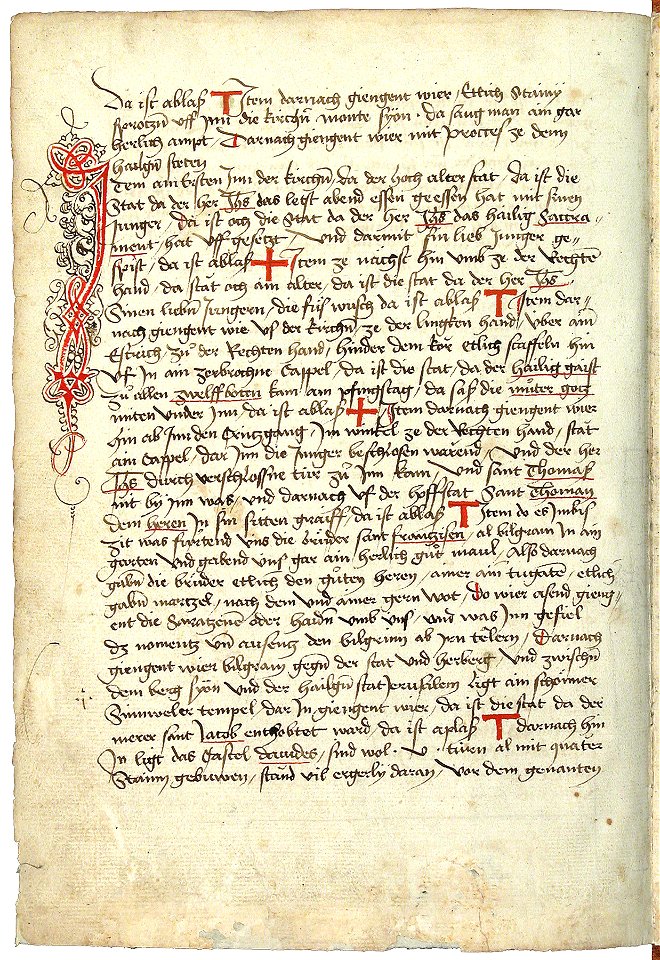 Da ist ablaß T Item darnach giengent wier / Ettlich Stainy
uff Inn die kirchn monte syon · da sang man ain gar
herlich ampt / Darnach giengent wier mit process ze dem
hailgn steten
Item am Ersten Inn der kirchn / da der hoch alter stat / da ist die
Stat da der her Jhs das letst abend essen geessen hat mit sinen
Junger / da ist och die Stat da der her Jhs das hailig Sacra=
ment / hat uff gesetzt / und darmit sin lieb Junger ge=
spist / da ist ablaß + Item ze nächst hin umb ze der Rechten
hand / da stät och ain alter / da ist die stat da der her Jhs
Sinen liebn Jungern / die füs wusch da ist ablaß T Item dar=
nach giengent wie us der kirchn ze der lingken hand / uber ain
Estrich / zu der Rechten hand / hinder dem kor etlich staffeln hin
uf In ain zerbrochne Cappel / da ist die stat / da der hailig gaist
zu allen zwelffboten kam am pfingstag / da saß die muter gotz
unten under Inn / da ist ablaß + Item darnach giengent wier
hin ab Inn den Crützgang / Im winkel ze der Rechten hand / stat
ain Cappel / dar Inn die Junger beschlosen warend / und der her
Jhs durch verschlosne tür zu Inn kam / und sant Thomas
nit by Inn was / und darnach uf der hoffstat Sant Thoman
dem heren In sin sitten graiff / da ist ablaß T Item do es Imbis
zit was fürtend uns die brüder sant franczisen / al bilgram In ain
garten und gabend uns gar ain herlich gut maul / Alß darnach
gabn die brüder etlich den guten heren / ainer ain tugaten / etlich
gabn martzel / nach dem und ainer gern wot / Do wier asend gieng=
ent die Saratzene oder haidn umb uns / und was Inn gefiel
dz nomentz un ausentz den bilgrinn ab Irn telern / Darnach
giengent wier bilgram gegn der stat und herberg / und zwischn
dem berg syon und der hailgn stat Jerusalem ligt ain schöner
Sinweler tempel / dar In giengent wier / da ist die stat da der
merer sant Jacob enthobtet ward / da ist aplaß T Darnach hin
In ligt das Castel davides / sind wol · v · türn al mit quater
Stainy gebuwen / stand vil ergerly daran / vor dem genanten